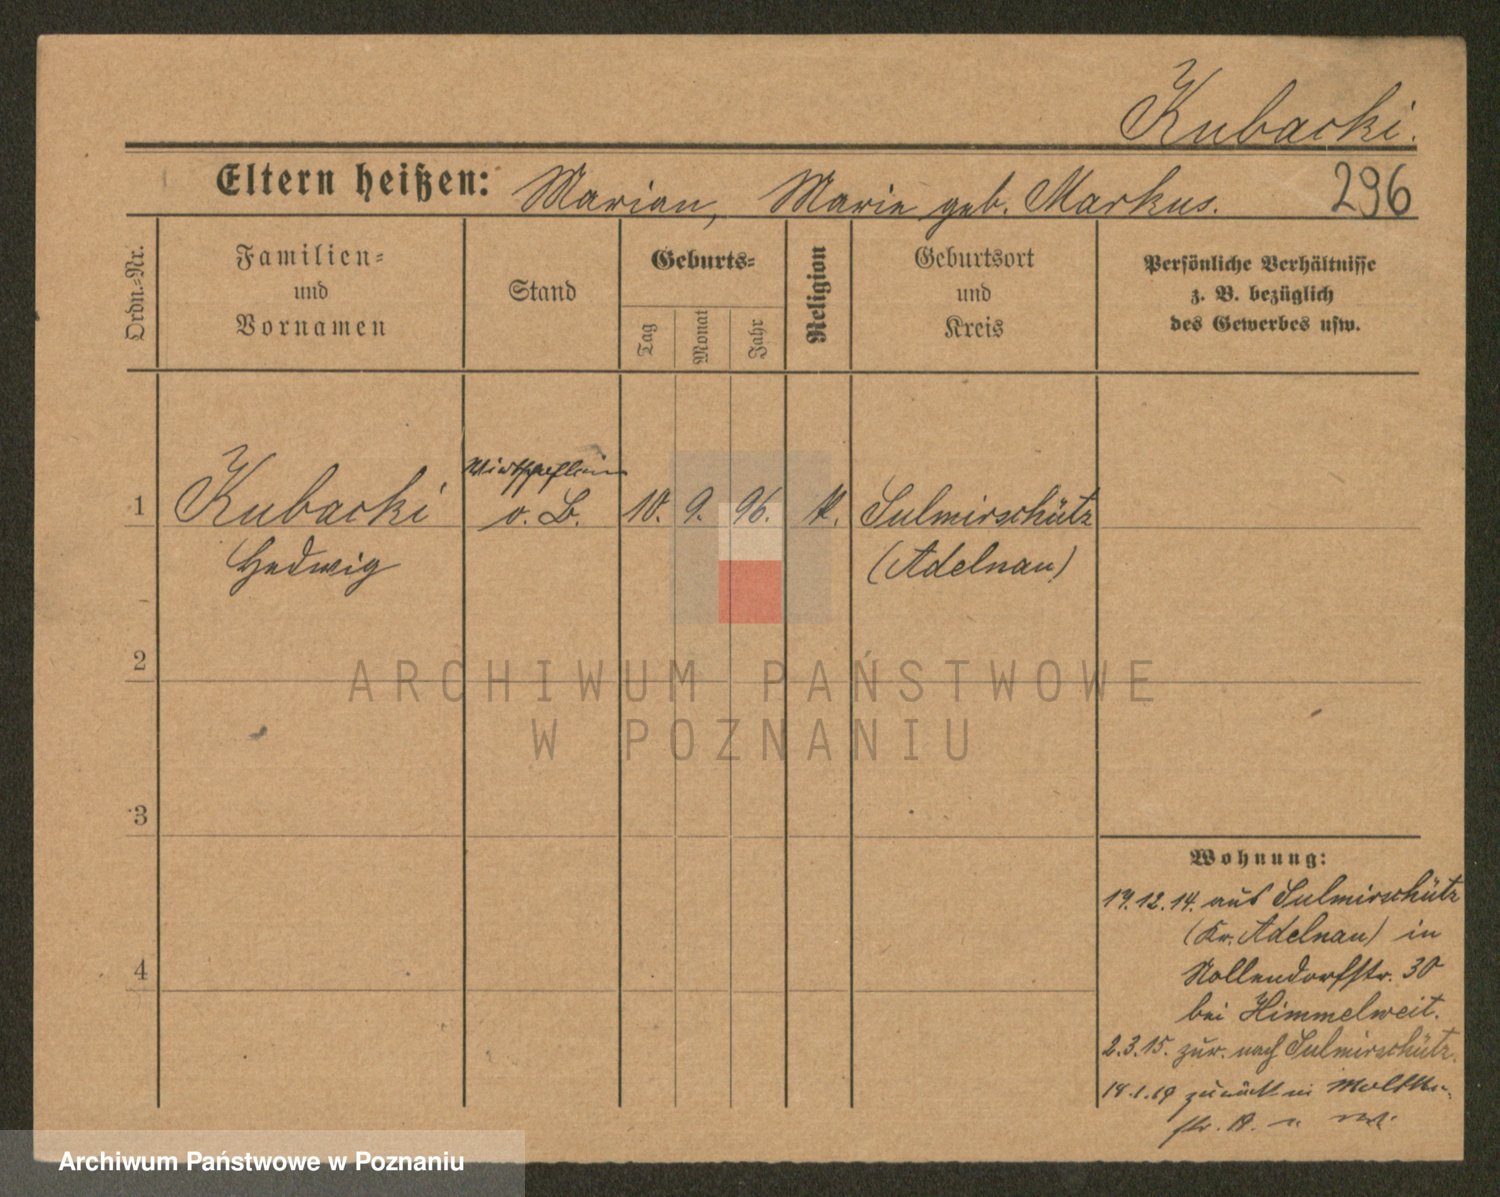 Kubacki.
Eltern heißen: Marian, Marie geb. Markus. 296
Ordn.-Nr.
Familien- und Vornamen
Stand
Geburts-
Tag
Monat
Jahr
Religion
Geburtsort und Kreis
Persönliche Verhältnisse
z. B. bezüglich
des Gewerbes usw.
1 Kubacki o. B. 10. 9. 96. K. Sulmirschütz
Hedwig (Adelnau)
2
ARCHIWUM PAŃSTWOWE
W POZNANIU
3
Wohnung:
aus Sulmirschütz
(Kr. Adelnau) in
4
Nollendorfstr. 30
bei Himmelweit.
2.3.15. zur. nach Sulmirschütz.
Archiwum Państwowe w Poznaniu